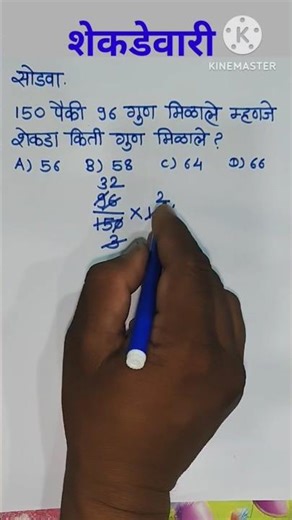 शेकडेवारी
KINEMASTER
सोडवा.
150 पैकी 96 गुण मिळाले म्हणजे
शेकडा किती गुण मिळाले ?
A) 56 B) 58 C) 64 D) 66
32
96
150 × 1 2
3